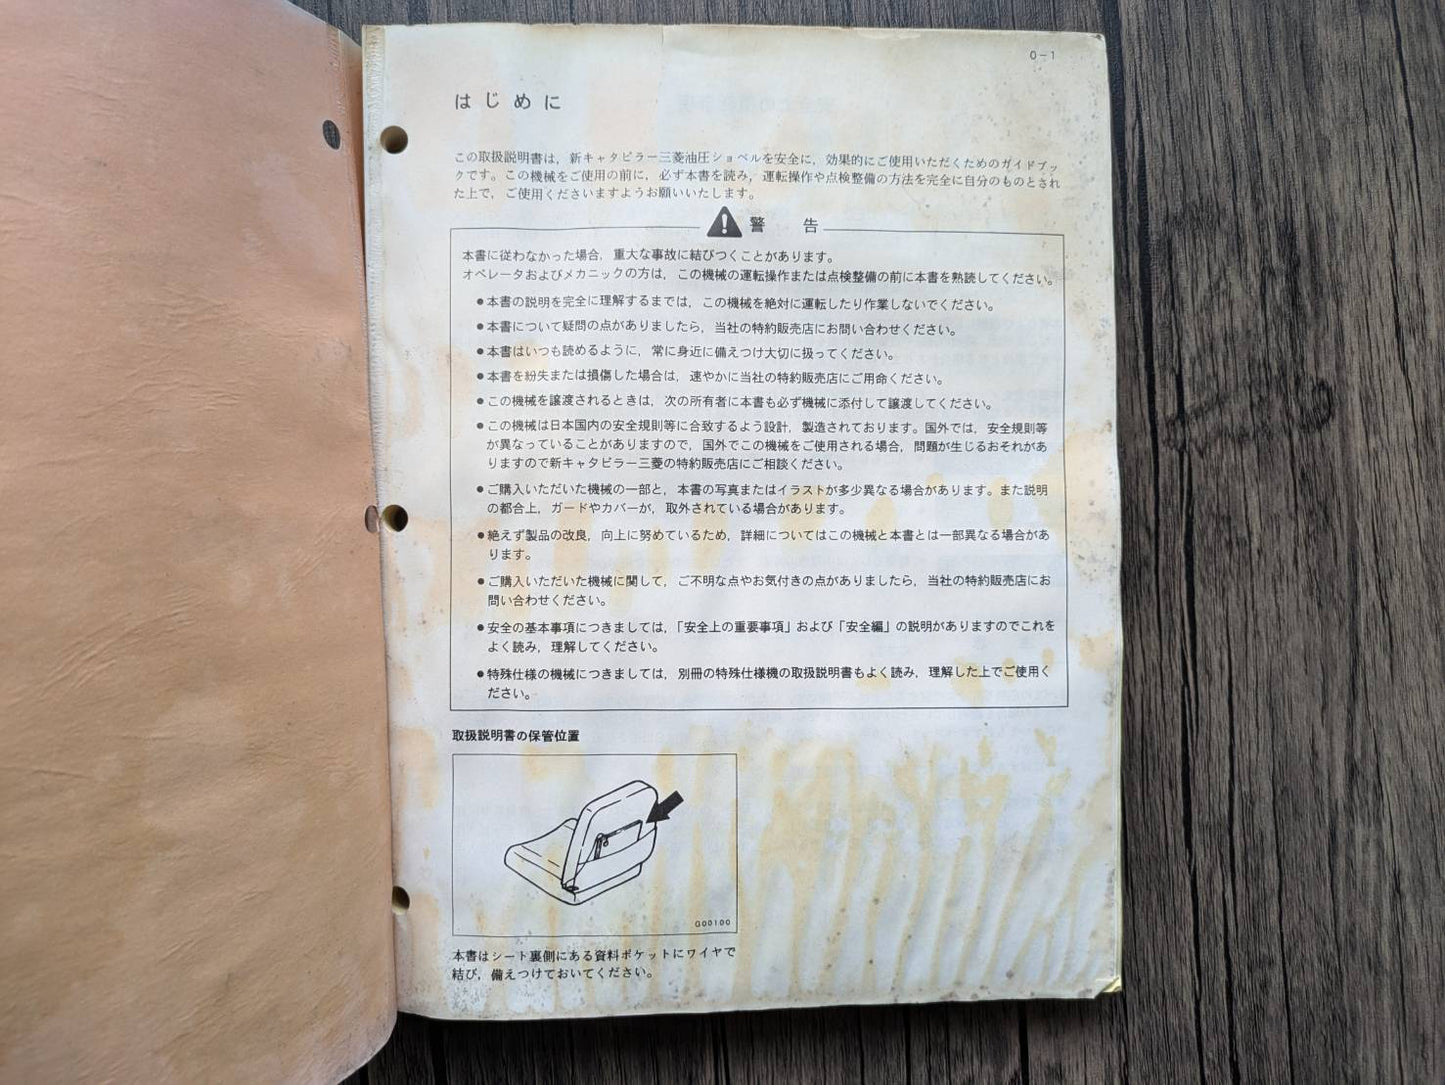 0-1
はじめに
この取扱説明書は，新キャタピラー三菱油圧ショベルを安全に，効果的にご使用いただくためのガイドブッ
クです。この機械をご使用の前に，必ず本書を読み，運転操作や点検整備の方法を完全に自分のものとされ
た上で，ご使用くださいますようお願いいたします。
警　告
本書に従わなかった場合，重大な事故に結びつくことがあります。
オペレータおよびメカニックの方は，この機械の運転操作または点検整備の前に本書を熟読してください。
●本書の説明を完全に理解するまでは，この機械を絶対に運転したり作業しないでください。
●本書について疑問の点がありましたら，当社の特約販売店にお問い合わせください。
●本書はいつも読めるように，常に身近に備えつけ大切に扱ってください。
●本書を紛失または損傷した場合は，速やかに当社の特約販売店にご用命ください。
●この機械を譲渡されるときは，次の所有者に本書も必ず機械に添付して譲渡してください。
●この機械は日本国内の安全規則等に合致するよう設計，製造されております。国外では，安全規則等
が異なっていることがありますので，国外でこの機械をご使用される場合，問題が生じるおそれがあ
りますので新キャタピラー三菱の特約販売店にご相談ください。
●ご購入いただいた機械の一部と，本書の写真またはイラストが多少異なる場合があります。また説明
の都合上，ガードやカバーが，取外されている場合があります。
●絶えず製品の改良，向上に努めているため，詳細についてはこの機械と本書とは一部異なる場合があ
ります。
●ご購入いただいた機械に関して，ご不明な点やお気付きの点がありましたら，当社の特約販売店にお
問い合わせください。
●安全の基本事項につきましては，「安全上の重要事項」および「安全編」の説明がありますのでこれを
よく読み，理解してください。
●特殊仕様の機械につきましては，別冊の特殊仕様機の取扱説明書もよく読み，理解した上でご使用く
ださい。
取扱説明書の保管位置
G00100
本書はシート裏側にある資料ポケットにワイヤで
結び，備えつけておいてください。